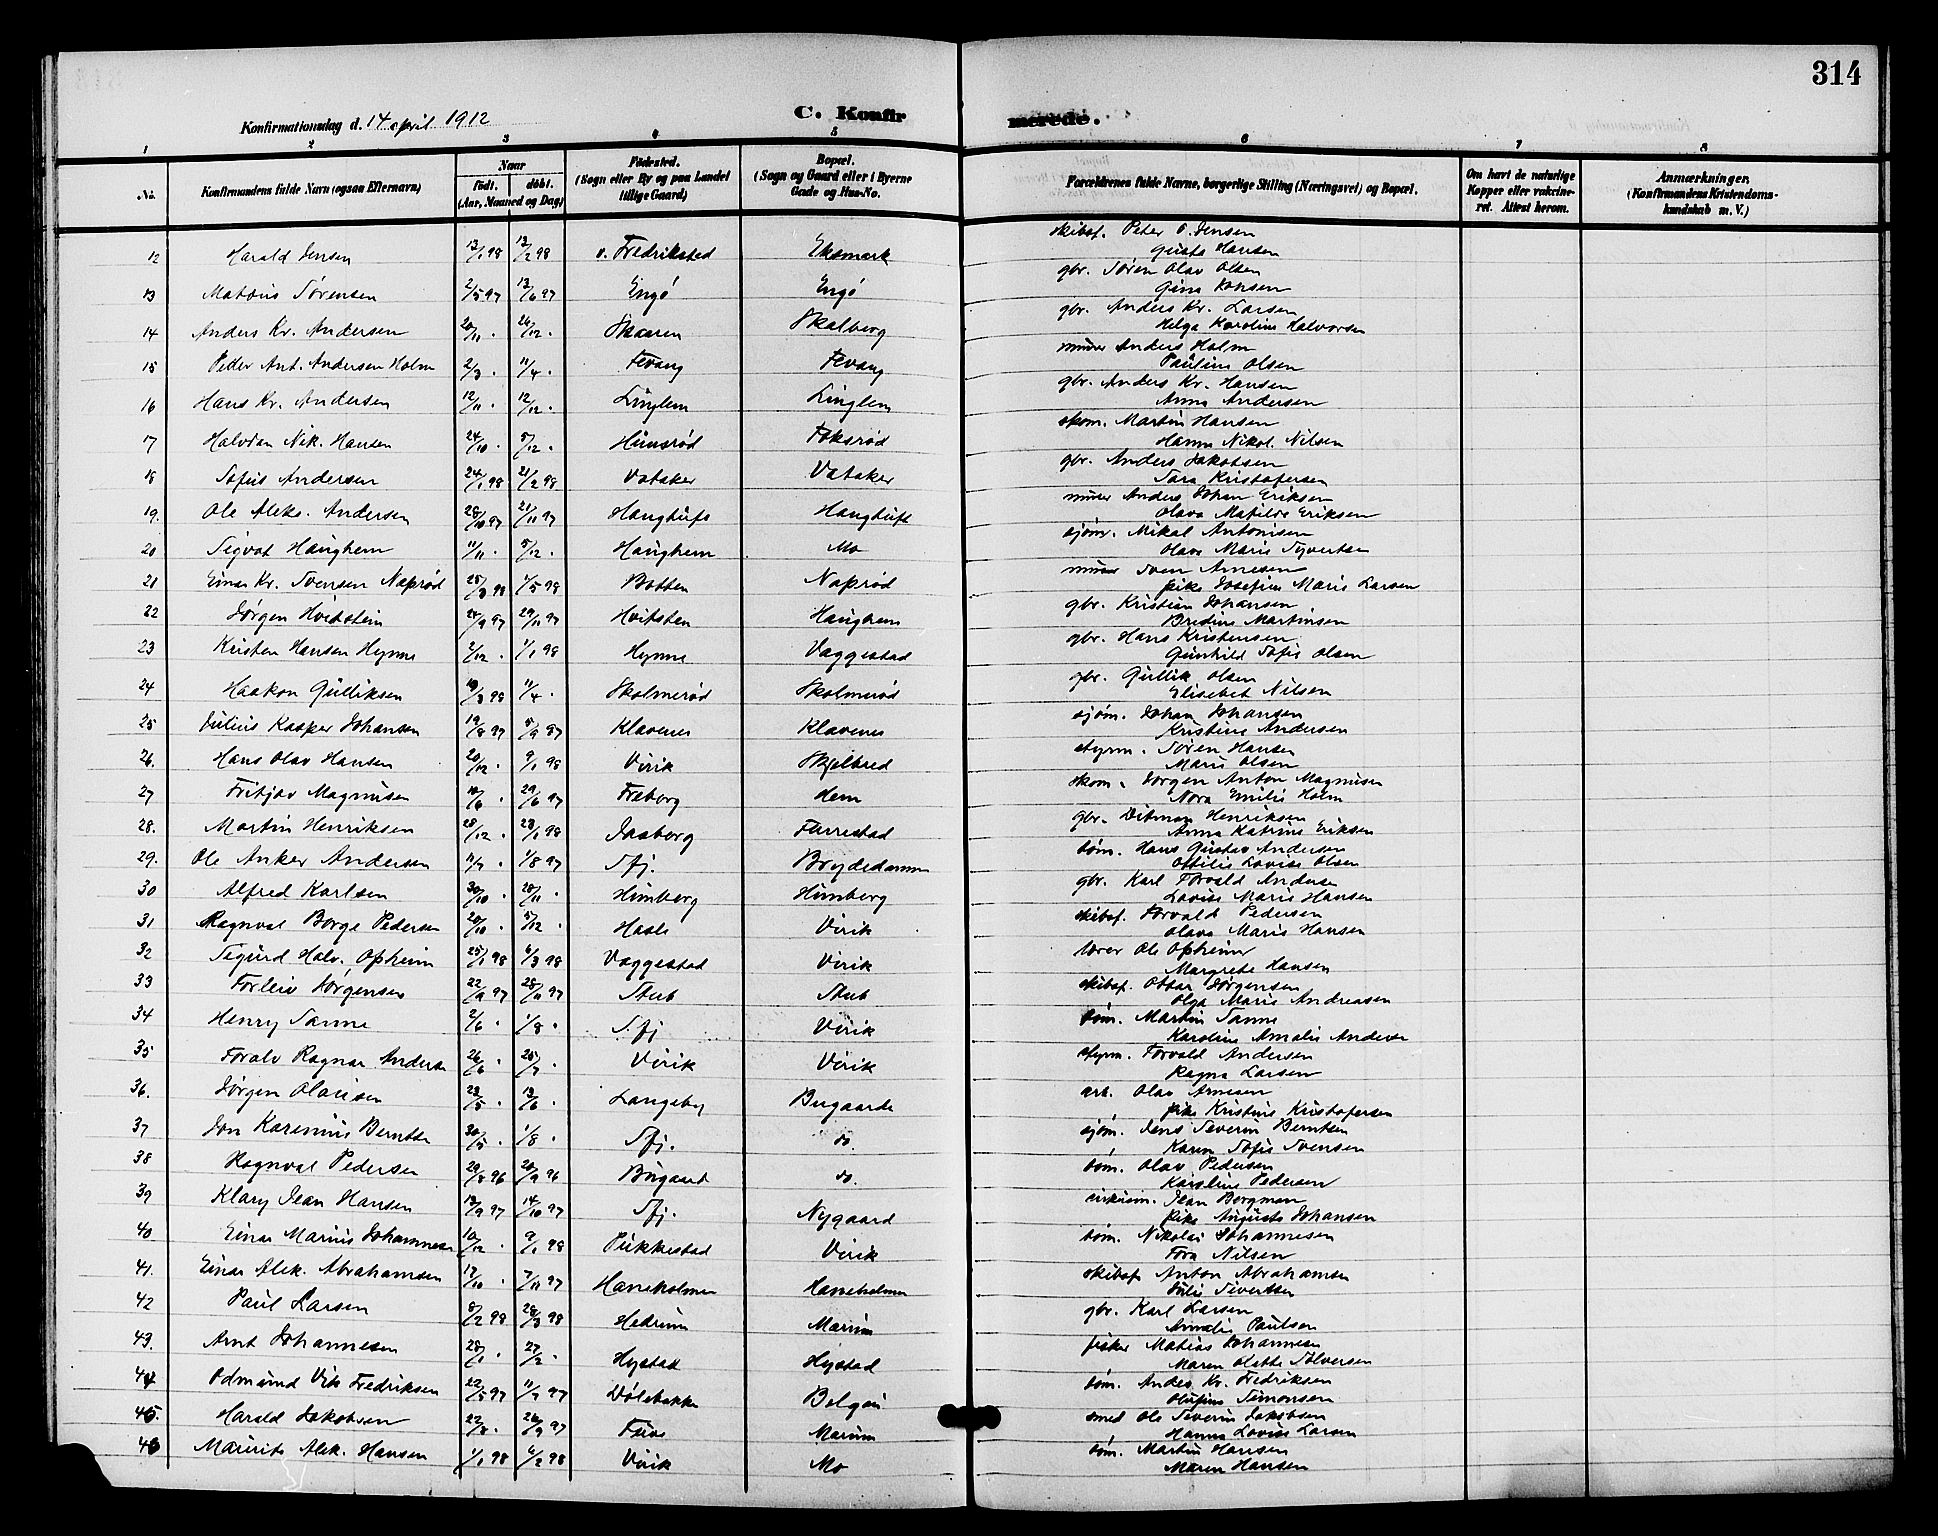 314
Konfirmationsdag d. 14 april 1912
C. Konfirmerede.
1 2 3 4 5 6 7 8
No. Konfirmandens fulde Navn (ogsaa Efternavn) Naar födt. döbt. (Aar, Maaned og Dag) Födested. (Sogn eller By og paa Landet tillige Gaard) Bopæl. (Sogn og Gaard eller i Byerne Gade og Hus-No. Forældrenes fulde Navne, borgerlige Stilling (Næringsvei) og Bopæl. Om havt de naturlige Kopper eller vakcineret. Attest herom. Anmærkninger. (Konfirmandens Kristendomskundskab m. V.)
12 Harald Jensen 13/1 98 13/2 98 v. Fredrikstad Ekomark skibsf. Peter O. Jensen
Gusta Hansen
13 Matæus Sørensen 2/5 97 13/6 97 Engö Engö gbr. Søren Olav Olsen
Gina Johsen
14 Anders Kr. Andersen 20/11 . 26/12 . Skaaren Skalberg gbr. Anders Kr. Larsen
Helga Karoline Halvorsen
15 Peder Ant. Andersen Holm 2/3 . 11/4 . Fevang Fevang murer Anders Holm
Pauline Olsen
16 Hans Kr. Andersen 12/11 . 12/12 . Linglem Linglem gbr. Anders Kr. Hansen
Anna Andersen
17 Halvdan Nik. Hansen 24/10 . 5/12 . Hunsrød Foksrød skom. Martin Hansen
Hanna Nikol. Nilsen
18 Sofus Andersen 24/1 98 21/2 98 Vataker Vataker gbr. Anders Jakobsen
Sara Kristofersen
19. Ole Aleks. Andersen 28/10 97 21/11 97 Haugtuft Haugtuft murer Anders Johan Eriksen
Olava Matilde Eriksen
20 Sigvat Haughem 11/11 . 5/12 . Haughem Mo sjöm. Mikal Antonisen
Olava Marie Syvertsen
21 Einar Kr. Svensen Naprød 25/3 98 1/5 98 Botten Naprød murer Sven Arnesen
pike Josefine Marie Larsen
22 Jørgen Hvitstein 24/9 97 29/11 97 Hvitsten Haughem gbr. Kristian Johansen
Bredine Martinsen
23 Kristen Hansen Hynne 2/12 . 1/1 98 Hynne Vaggestad gbr. Hans Kristensen
Gunhild Sofie Olsen
24 Haakon Gulliksen 19/3 98 11/4 . Skolmerød Skolmerød gbr. Gullik Olsen
Elisebet Nilsen
25 Julius Kasper Johansen 19/8 97 5/9 97 Klavenes Klavenes sjöm. Johan Johansen
Kristine Andersen
26. Hans Olav Hansen 20/12 . 9/1 98 Virik Skjelbred styrm. Søren Hansen
Marie Olsen
27 Fritjov Magnusen 10/6 . 29/6 97 Freberg Hem skom. Jørgen Anton Magnusen
Nora Emilie Holm
28. Martin Henriksen 28/12 . 23/1 98 Jaaberg Furrestad gbr. Ditman Henriksen
Anna Katrine Eriksen
29. Ole Anker Andersen 11/7 . 1/8 97 Sfj. Brydedammen töm. Hans Gustav Andersen
Ottilie Lovise Olsen
30 Alfred Karlsen 30/10 . 28/11 . Himberg Himberg gbr. Karl Torvald Andersen
Lovise Marie Hansen
31 Ragnval Borge Pedersen 20/10 . 5/12 . Hasle Virik skibsf. Torvald Pedersen
Olava Marie Hansen
32 Sigurd Halv. Opheim 25/1 98 6/3 98 Vaggestad Virik lærer Ole Opheim
Margrete Hansen
33 Torleiv Jørgensen 22/9 97 28/11 97 Stub Stub skibsf. Ottar Jørgensen
Olga Marie Andreasen
34 Henry Sanne 2/6 . 1/8 . Sfj Virik töm. Martin Sanne
Karoline Amalie Andersen
35 Toralv Ragnar Andersen 26/6 . 25/7 . Virik Virik styrm. Torvald Andersen
Ragna Larsen
36. Jørgen Olausen 23/5 . 13/6 . Langeby Bugaarde arb. Olav Arnesen
pike Kristine Kristofersen
37 Jon Karenius Berntsen 30/5 . 1/8 . Sfj. do. sjöm. Jens Severin Berntsen
Karen Sofie Svensen
38 Ragnval Pedersen 29/8 96 20/9 96 Bugaard do. töm. Olav Pedersen
Karoline Pedersen
39 Klary Jean Hansen 13/9 97 14/10 97 Sfj. Nygaard cirkusm. Jean Bergman
pike Augusta Johansen
40 Einar Marius Johannesen 10/12 . 9/1 98 Pukkestad Virik töm. Nikolai Johannesen
Tora Nilsen
41. Einar Alek. Abrahamsen 17/10 . 7/11 97 Haneholmen Haneholmen skibsf. Anton Abrahamsen
Julie Sivertsen
42 Paul Larsen 8/2 98 28/3 98 Hedrum Marum gbr. Karl Larsen
Amalie Paulsen
43. Arnt Johannesen 28/1 . 27/2 . Hystad Hystad fisker Matias Johannesen
Maren Olette Tolversen
44 Odmund Vik Fredriksen 22/5 97 11/7 97 Dölebakke Belgau töm. Anders Kr. Fredriksen
Olufine Simonsen
45. Harald Jakobsen 22/8 . 26/9 97 Furo Marum smed Ole Severin Jakobsen
Hanna Lovise Larsen
46 Maurits Alek. Hansen 1/1 98 6/2 98 Virik Mo töm. Martin Hansen
Maren Hansen